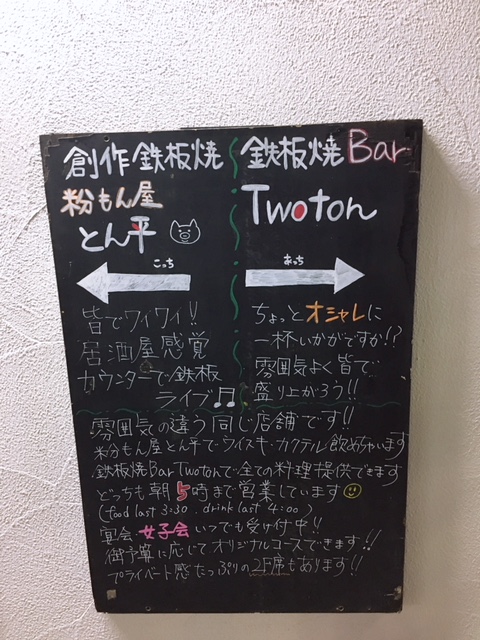 創作鉄板焼
粉もん屋
とん平
こっち
皆でワイワイ!!
居酒屋感覚
カウンターで鉄板
ライブ♬
鉄板焼Bar
Twoton
あっち
ちょっとオシャレに
一杯いかがですか!?
雰囲気よく皆で
盛り上がろう!!
雰囲気の違う同じ店舗です!!
粉もん屋とん平でウイスキーカクテル飲めちゃいます
鉄板焼Bar Twotonで全ての料理提供できます
どっちも朝5時まで営業しています
(food last 3:30 drink last 4:00)
宴会・女子会いつでも受け付中!!
御予算に応じてオリジナルコースできます!!
プライベート感たっぷりの2F席もあります!!